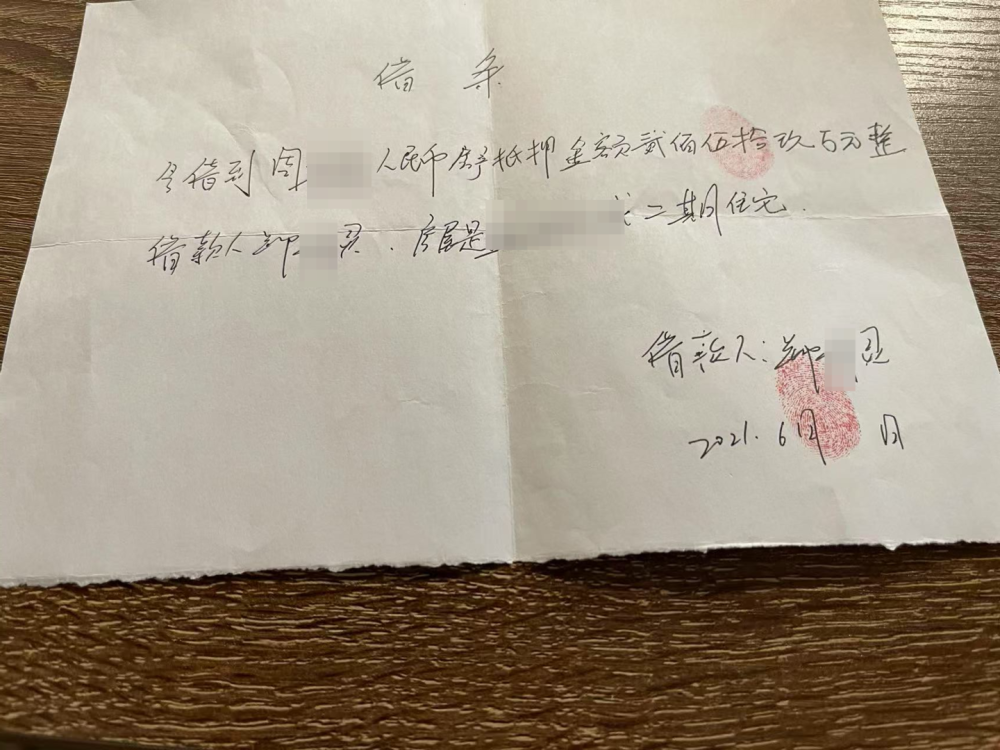 借条
今借到周 人民币 抵押金额贰佰伍拾玖万元整
借款人郑 灵．房屋是 二期住宅．
借款人：郑 灵
2021．6月 日